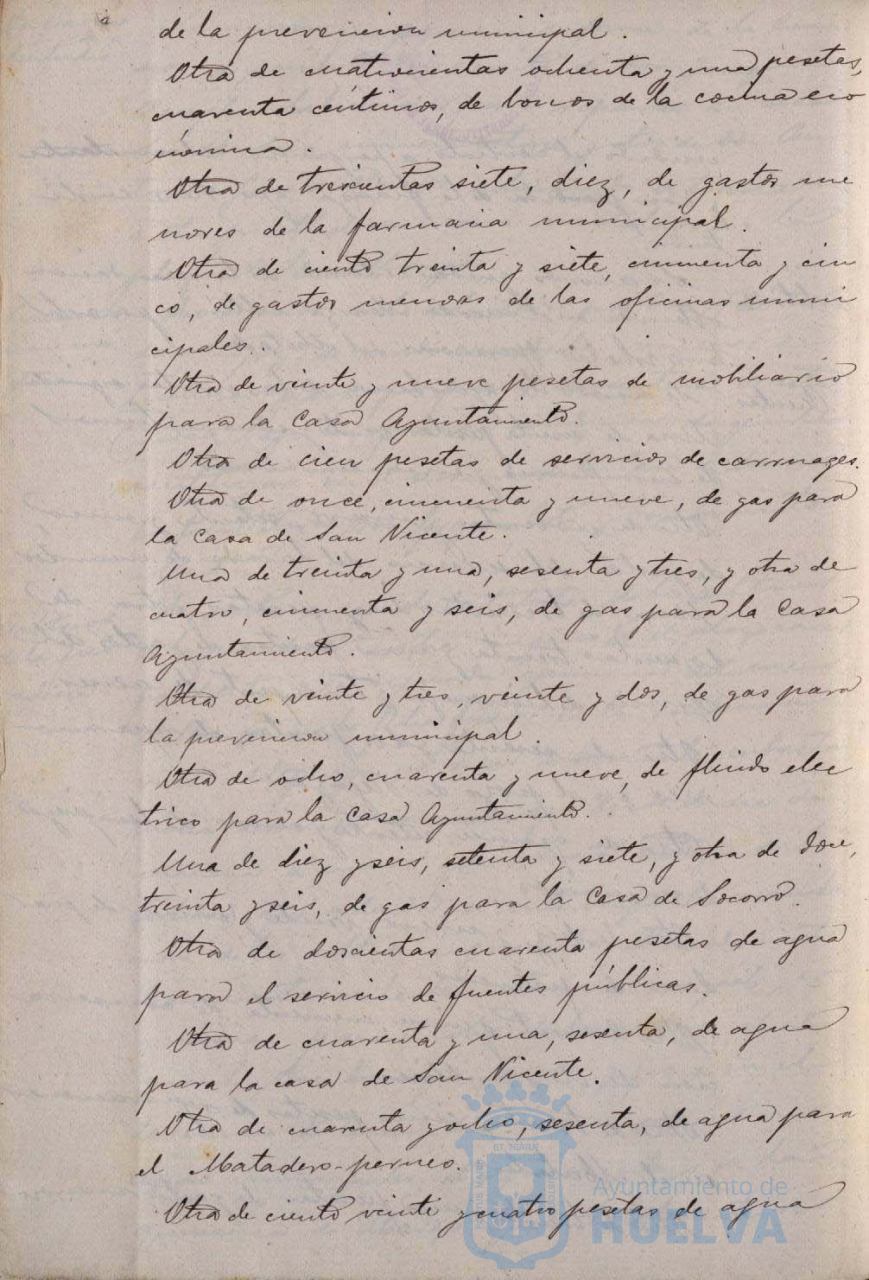 de la prevencion municipal.
Otra de cuatrocientas ochenta y una pesetas,
cuarenta céntimos, de bonos de la cocina eco
nómica.
Otra de trescientas siete, diez, de gastos me
nores de la farmacia municipal.
Otra de ciento treinta y siete, cincuenta y cin
co, de gastos menores de las oficinas muni
cipales.
Otra de veinte y nueve pesetas de mobiliario
para la Casa Ayuntamiento.
Otra de cien pesetas de servicios de carruages.
Otra de once, cincuenta y nueve, de gas para
la casa de San Vicente.
Una de treinta y una, sesenta y tres, y otra de
cuatro, cincuenta y seis, de gas para la Casa
Ayuntamiento.
Otra de veinte y tres, veinte y dos, de gas para
la prevencion municipal.
Otra de ocho, cuarenta y nueve, de fluido elec
trico para la Casa Ayuntamiento.
Una de diez y seis, setenta y siete, y otra de doce,
treinta y seis, de gas para la Casa de Socorro.
Otra de doscientas cuarenta pesetas de agua
para el servicio de fuentes públicas.
Otra de cuarenta y una, sesenta, de agua
para la casa de San Vicente.
Otra de cuarenta y ocho, sesenta, de agua para
el Matadero-perneo.
Otra de ciento veinte y cuatro pesetas de agua
Ayuntamiento de
HUELVA